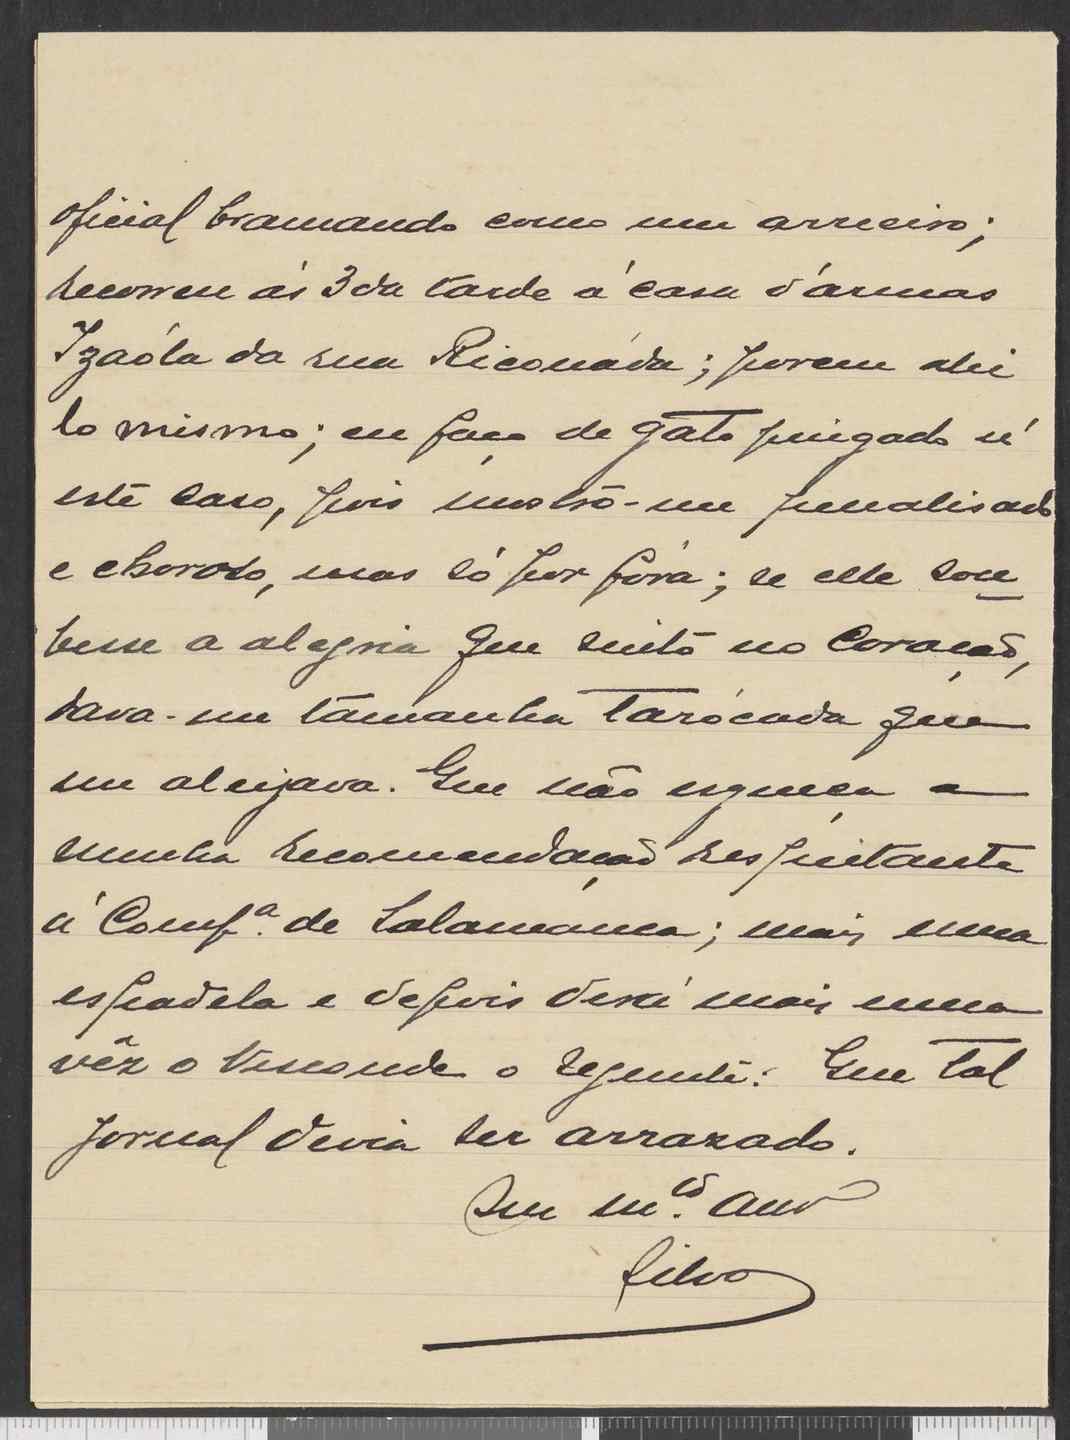 oficial bramando como um arrieiro;
recorreu ás 3 da tarde á casa d'ármas
Izaóla da rua Riconáda; porem ahi
lo mismo; eu faço de gato pingado n'
este caso, pois mostro-me penalisado
e choroso, mas só por fóra; se elle sou
besse a alegria que sinto no coração,
dava-me tamanha tarócada que
me aleijava. Que não esqueça a
minha recomendação respeitante
á Comp.ª de Salamanca; mais uma
espadela e depois dirá mais uma
vêz o Visconde o seguinte: Que tal
jornal devia ser arrazado.
Seu m.to am.o
Silva